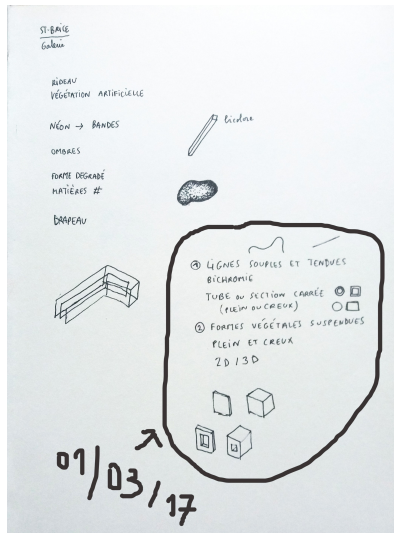 ST-BRICE
Galerie
RIDEAU
VÉGÉTATION ARTIFICIELLE
NÉON → BANDES
bicolore
OMBRES
FORME DEGRADÉ
MATIÈRES #
DRAPEAU
① LIGNES SOUPLES ET TENDUES
BICHROMIE
TUBE OU SECTION CARRÉE
(PLEIN OU CREUX)
② FORMES VÉGÉTALES SUSPENDUES
PLEIN ET CREUX
2D / 3D
01/03/17